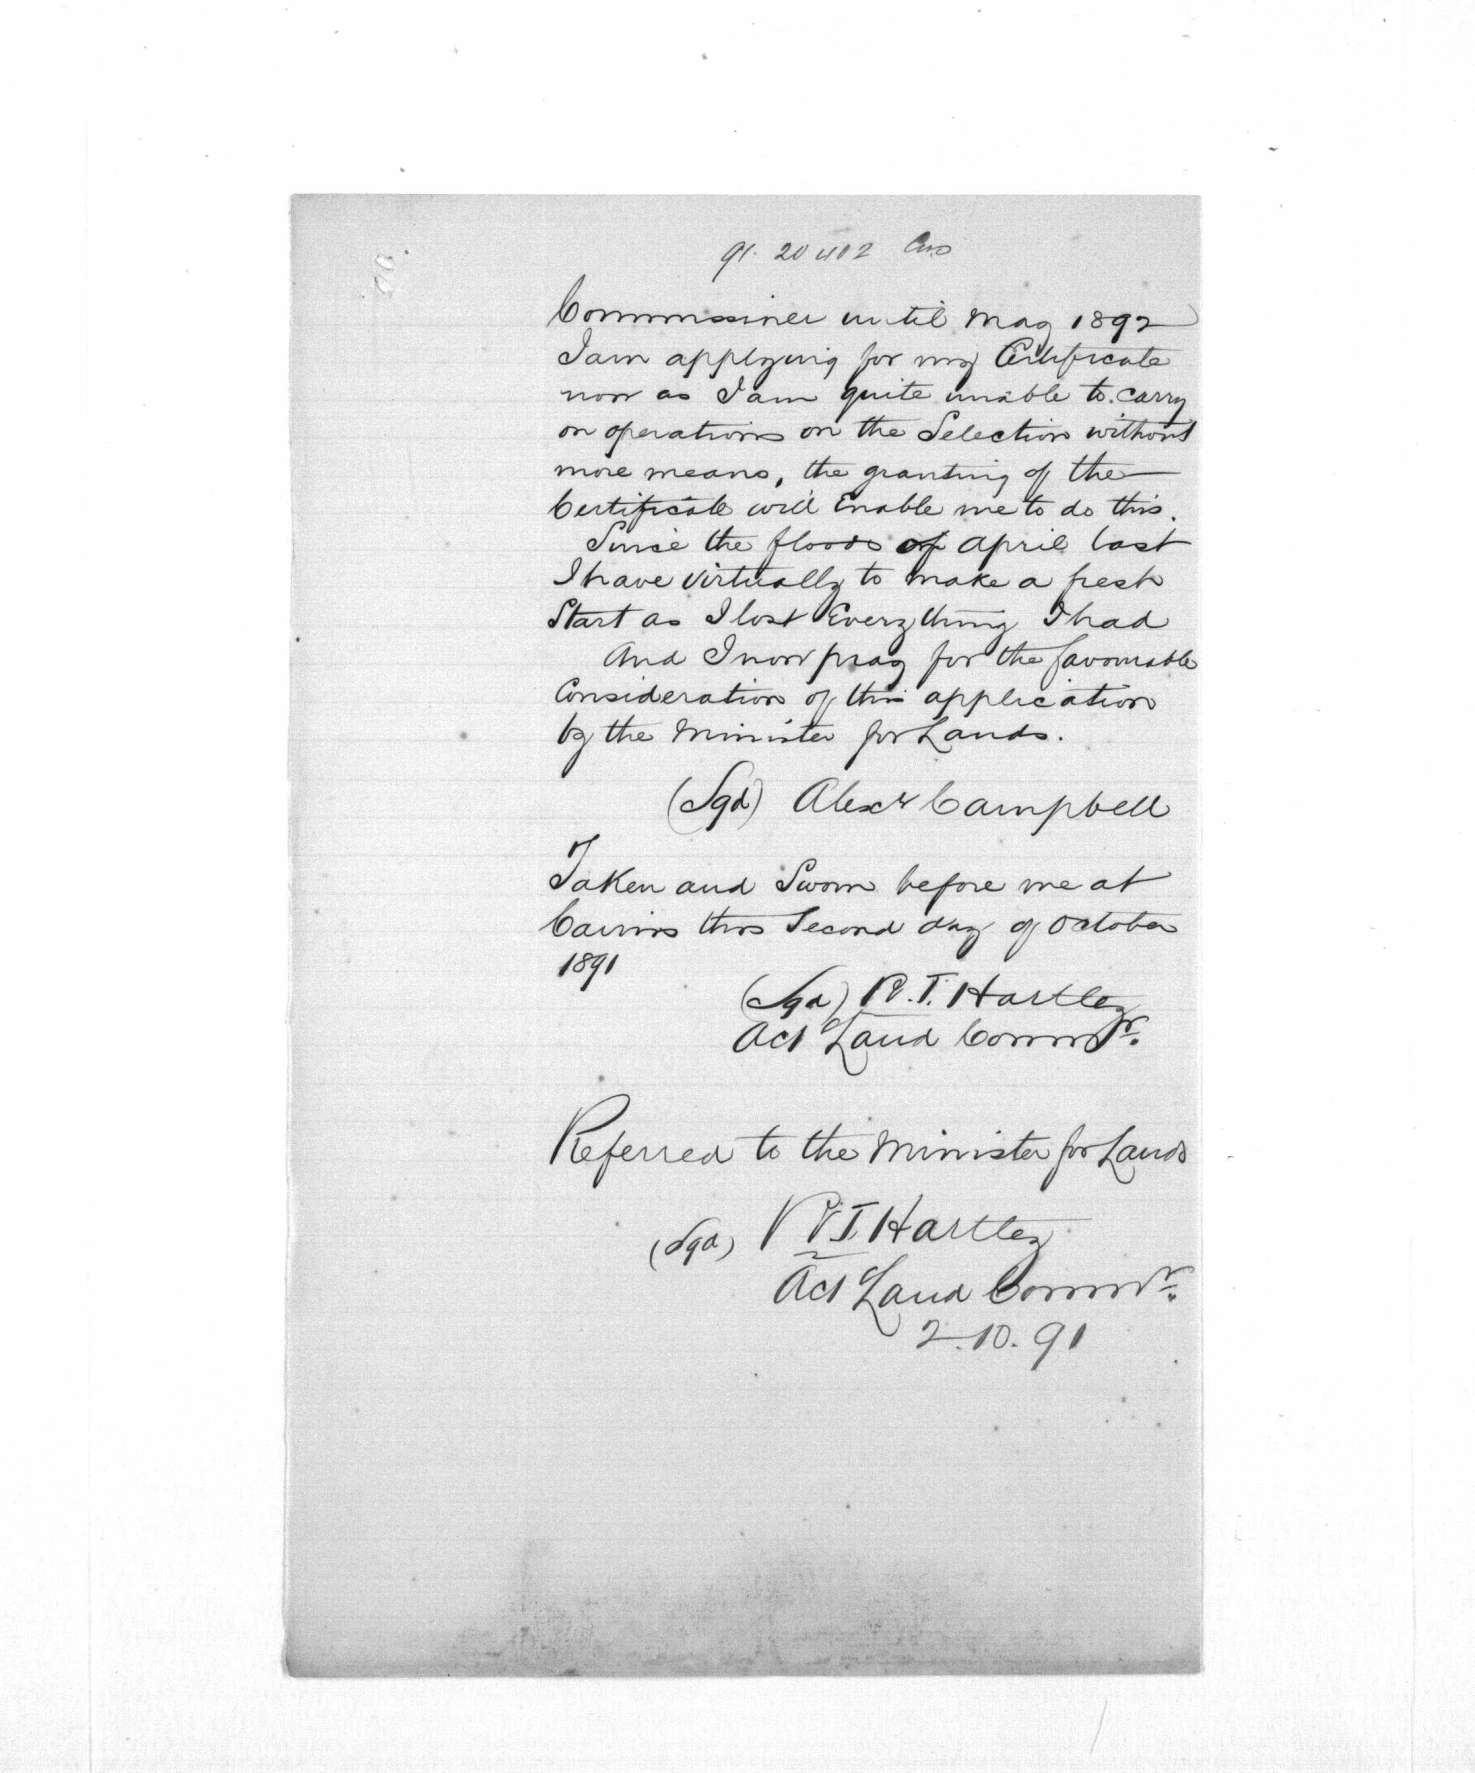 91. 20402
Commissiner until May 1892
I am applying for my Certificate
now as I am quite unable to carry
on operations on the Selection without
more means, the granting of the
Certificate will Enable me to do this.
Since the floods of April last
I have virtually to make a fresh
Start as I lost Every thing I had
And I now pray for the favourable
Consideration of this application
by the Minister for Lands.
(Sgd) Alexr Campbell
Taken and Sworn before me at
Cairns this Second day of October
1891
(Sgd) R. T. Hartley
Act Land Commr.
Referred to the Minister for Lands
(Sgd) R T Hartley
Act Land Commr.
2.10.91